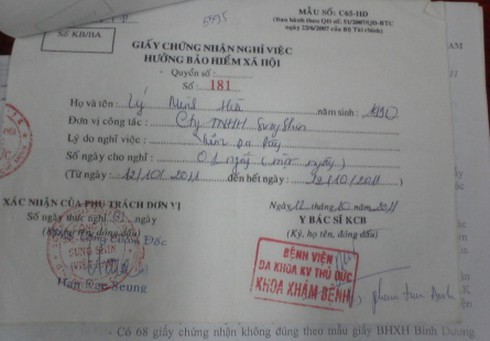 MẪU SỐ: C65-HD
(Ban hành theo QĐ số: 51/2007/QĐ-BTC
ngày 22/6/2007 của Bộ Tài chính)
Số KB/BA
GIẤY CHỨNG NHẬN NGHỈ VIỆC
HƯỞNG BẢO HIỂM XÃ HỘI
Quyển số:
Số: 181
Họ và tên: Lý Minh Hià năm sinh: 1990
Đơn vị công tác: Cty TNHH SungShin
Lý do nghỉ việc:
Số ngày cho nghỉ: 01 ngày (một ngày)
(Từ ngày: 12/10/2011 đến hết ngày: 12/10/2011)
XÁC NHẬN CỦA PHỤ TRÁCH ĐƠN VỊ
Số ngày thực nghỉ: 01 ngày
(Ký, họ tên, đóng dấu)
Giám Đốc
SUNG SHIN
Han Dae Seung
Ngày 12 tháng 10 năm 2011
Y BÁC SĨ KCB
(Ký, họ tên, đóng dấu)
BỆNH VIỆN
ĐA KHOA KV THỦ ĐỨC
KHOA KHÁM BỆNH
- Có 68 giấy chứng nhận không đúng theo mẫu giấy BHXH Bình Dương